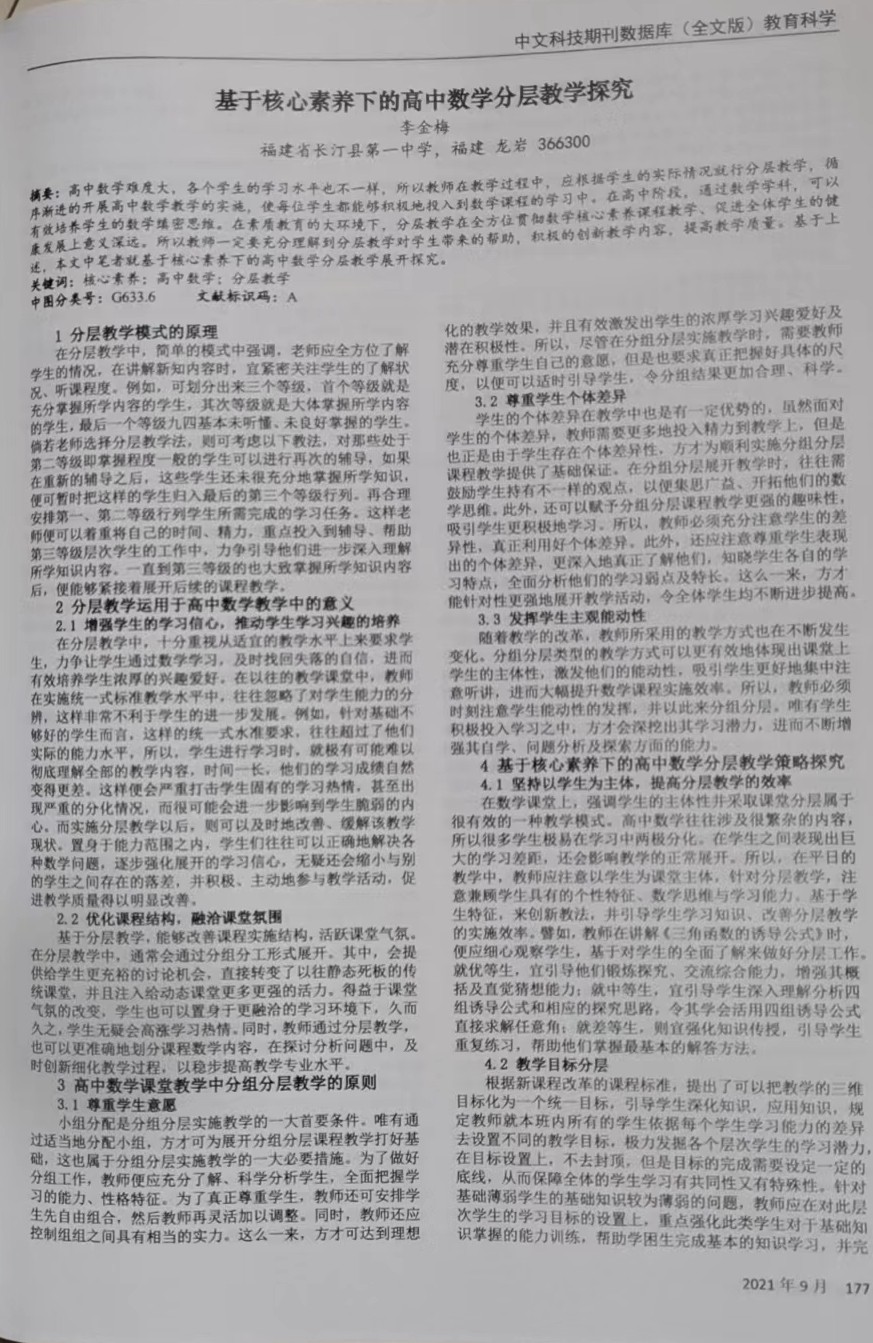 中文科技期刊数据库（全文版）教育科学
基于核心素养下的高中数学分层教学探究
李金梅
福建省长汀县第一中学，福建 龙岩 366300
摘要：高中数学难度大，各个学生的学习水平也不一样，所以教师在教学过程中，应根据学生的实际情况就行分层教学，循
序渐进的开展高中数学教学的实施，使每位学生都能够积极地投入到数学课程的学习中。在高中阶段，通过数学学科，可以
有效培养学生的数学缜密思维。在素质教育的大环境下，分层教学在全方位贯彻数学核心素养课程教学、促进全体学生的健
康发展上意义深远。所以教师一定要充分理解到分层教学对学生带来的帮助，积极的创新教学内容，提高教学质量。基于上
述，本文中笔者就基于核心素养下的高中数学分层教学展开探究。
关键词：核心素养；高中数学；分层教学
中图分类号：G633.6 文献标识码：A
1 分层教学模式的原理
在分层教学中，简单的模式中强调，老师应全方位了解
学生的情况，在讲解新知内容时，宜紧密关注学生的了解状
况、听课程度。例如，可划分出来三个等级，首个等级就是
充分掌握所学内容的学生，其次等级就是大体掌握所学内容
的学生，最后一个等级九四基本未听懂、未良好掌握的学生。
倘若老师选择分层教学法，则可考虑以下教法，对那些处于
第二等级即掌握程度一般的学生可以进行再次的辅导，如果
在重新的辅导之后，这些学生还未很充分地掌握所学知识，
便可暂时把这样的学生归入最后的第三个等级行列。再合理
安排第一、第二等级行列学生所需完成的学习任务。这样老
师便可以着重将自己的时间、精力，重点投入到辅导、帮助
第三等级层次学生的工作中，力争引导他们进一步深入理解
所学知识内容。一直到第三等级的也大致掌握所学知识内容
后，便能够紧接着展开后续的课程教学。
2 分层教学运用于高中数学教学中的意义
2.1 增强学生的学习信心，推动学生学习兴趣的培养
在分层教学中，十分重视从适宜的教学水平上来要求学
生，力争让学生通过数学学习，及时找回失落的自信，进而
有效培养学生浓厚的兴趣爱好。在以往的教学课堂中，教师
在实施统一式标准教学水平中，往往忽略了对学生能力的分
辨，这样非常不利于学生的进一步发展。例如，针对基础不
够好的学生而言，这样的统一式水准要求，往往超过了他们
实际的能力水平，所以，学生进行学习时，就极有可能难以
彻底理解全部的教学内容，时间一长，他们的学习成绩自然
变得更差。这样便会严重打击学生固有的学习热情，甚至出
现严重的分化情况，而很可能会进一步影响到学生脆弱的内
心。而实施分层教学以后，则可以及时地改善、缓解该教学
现状。置身于能力范围之内，学生们往往可以正确地解决各
种数学问题，逐步强化展开的学习信心，无疑还会缩小与别
的学生之间存在的落差，并积极、主动地参与教学活动，促
进教学质量得以明显改善。
2.2 优化课程结构，融洽课堂氛围
基于分层教学，能够改善课程实施结构，活跃课堂气氛。
在分层教学中，通常会通过分组分工形式展开。其中，会提
供给学生更充裕的讨论机会，直接转变了以往静态死板的传
统课堂，并且注入给动态课堂更多更强的活力。得益于课堂
气氛的改变，学生也可以置身于更融洽的学习环境下，久而
久之，学生无疑会高涨学习热情。同时，教师通过分层教学，
也可以更准确地划分课程数学内容，在探讨分析问题中，及
时创新细化教学过程，以稳步提高教学专业水平。
3 高中数学课堂教学中分组分层教学的原则
3.1 尊重学生意愿
小组分配是分组分层实施教学的一大首要条件。唯有通
过适当地分配小组，方才可为展开分组分层课程教学打好基
础，这也属于分组分层实施教学的一大必要措施。为了做好
分组工作，教师便应充分了解、科学分析学生，全面把握学
习的能力、性格特征。为了真正尊重学生，教师还可安排学
生先自由组合，然后教师再灵活加以调整。同时，教师还应
控制组组之间具有相当的实力。这么一来，方才可达到理想
化的教学效果，并且有效激发出学生的浓厚学习兴趣爱好及
潜在积极性。所以，尽管在分组分层实施教学时，需要教师
充分尊重学生自己的意愿，但是也要求真正把握好具体的尺
度，以便可以适时引导学生，令分组结果更加合理、科学。
3.2 尊重学生个体差异
学生的个体差异在教学中也是有一定优势的，虽然面对
学生的个体差异，教师需要更多地投入精力到教学上，但是
也正是由于学生存在个体差异性，方才为顺利实施分组分层
课程教学提供了基础保证。在分组分层展开教学时，往往需
鼓励学生持有不一样的观点，以便集思广益、开拓他们的数
学思维。此外，还可以赋予分组分层课程教学更强的趣味性，
吸引学生更积极地学习。所以，教师必须充分注意学生的差
异性，真正利用好个体差异。此外，还应注意尊重学生表现
出的个体差异，更深入地真正了解他们，知晓学生各自的学
习特点，全面分析他们的学习弱点及特长。这么一来，方才
能针对性更强地展开教学活动，令全体学生均不断进步提高。
3.3 发挥学生主观能动性
随着教学的改革，教师所采用的教学方式也在不断发生
变化。分组分层类型的教学方式可以更有效地体现出课堂上
学生的主体性，激发他们的能动性，吸引学生更好地集中注
意听讲，进而大幅提升数学课程实施效率。所以，教师必须
时刻注意学生能动性的发挥，并以此来分组分层。唯有学生
积极投入学习之中，方才会深挖出其学习潜力，进而不断增
强其自学、问题分析及探索方面的能力。
4 基于核心素养下的高中数学分层教学策略探究
4.1 坚持以学生为主体，提高分层教学的效率
在数学课堂上，强调学生的主体性并采取课堂分层属于
很有效的一种教学模式。高中数学往往涉及很繁杂的内容，
所以很多学生极易在学习中两极分化。在学生之间表现出巨
大的学习差距，还会影响教学的正常展开。所以，在平日的
教学中，教师应注意以学生为课堂主体，针对分层教学，注
意兼顾学生具有的个性特征、数学思维与学习能力。基于学
生特征，来创新教法，并引导学生学习知识、改善分层教学
的实施效率。譬如，教师在讲解《三角函数的诱导公式》时，
便应细心观察学生，基于对学生的全面了解来做好分层工作。
就优等生，宜引导他们锻炼探究、交流综合能力，增强其概
括及直觉猜想能力；就中等生，宜引导学生深入理解分析四
组诱导公式和相应的探究思路，令其学会活用四组诱导公式
直接求解任意角；就差等生，则宜强化知识传授，引导学生
重复练习，帮助他们掌握最基本的解答方法。
4.2 教学目标分层
根据新课程改革的课程标准，提出了可以把教学的三维
目标化为一个统一目标，引导学生深化知识，应用知识，规
定教师就本班内所有的学生依据每个学生学习能力的差异
去设置不同的教学目标，极力发掘各个层次学生的学习潜力，
在目标设置上，不去封顶，但是目标的完成需要设定一定的
底线，从而保障全体的学生学习有共同性又有特殊性。针对
基础薄弱学生的基础知识较为薄弱的问题，教师应在对此层
次学生的学习目标的设置上，重点强化此类学生对于基础知
识掌握的能力训练，帮助学困生完成基本的知识学习，并完
2021 年 9 月 177